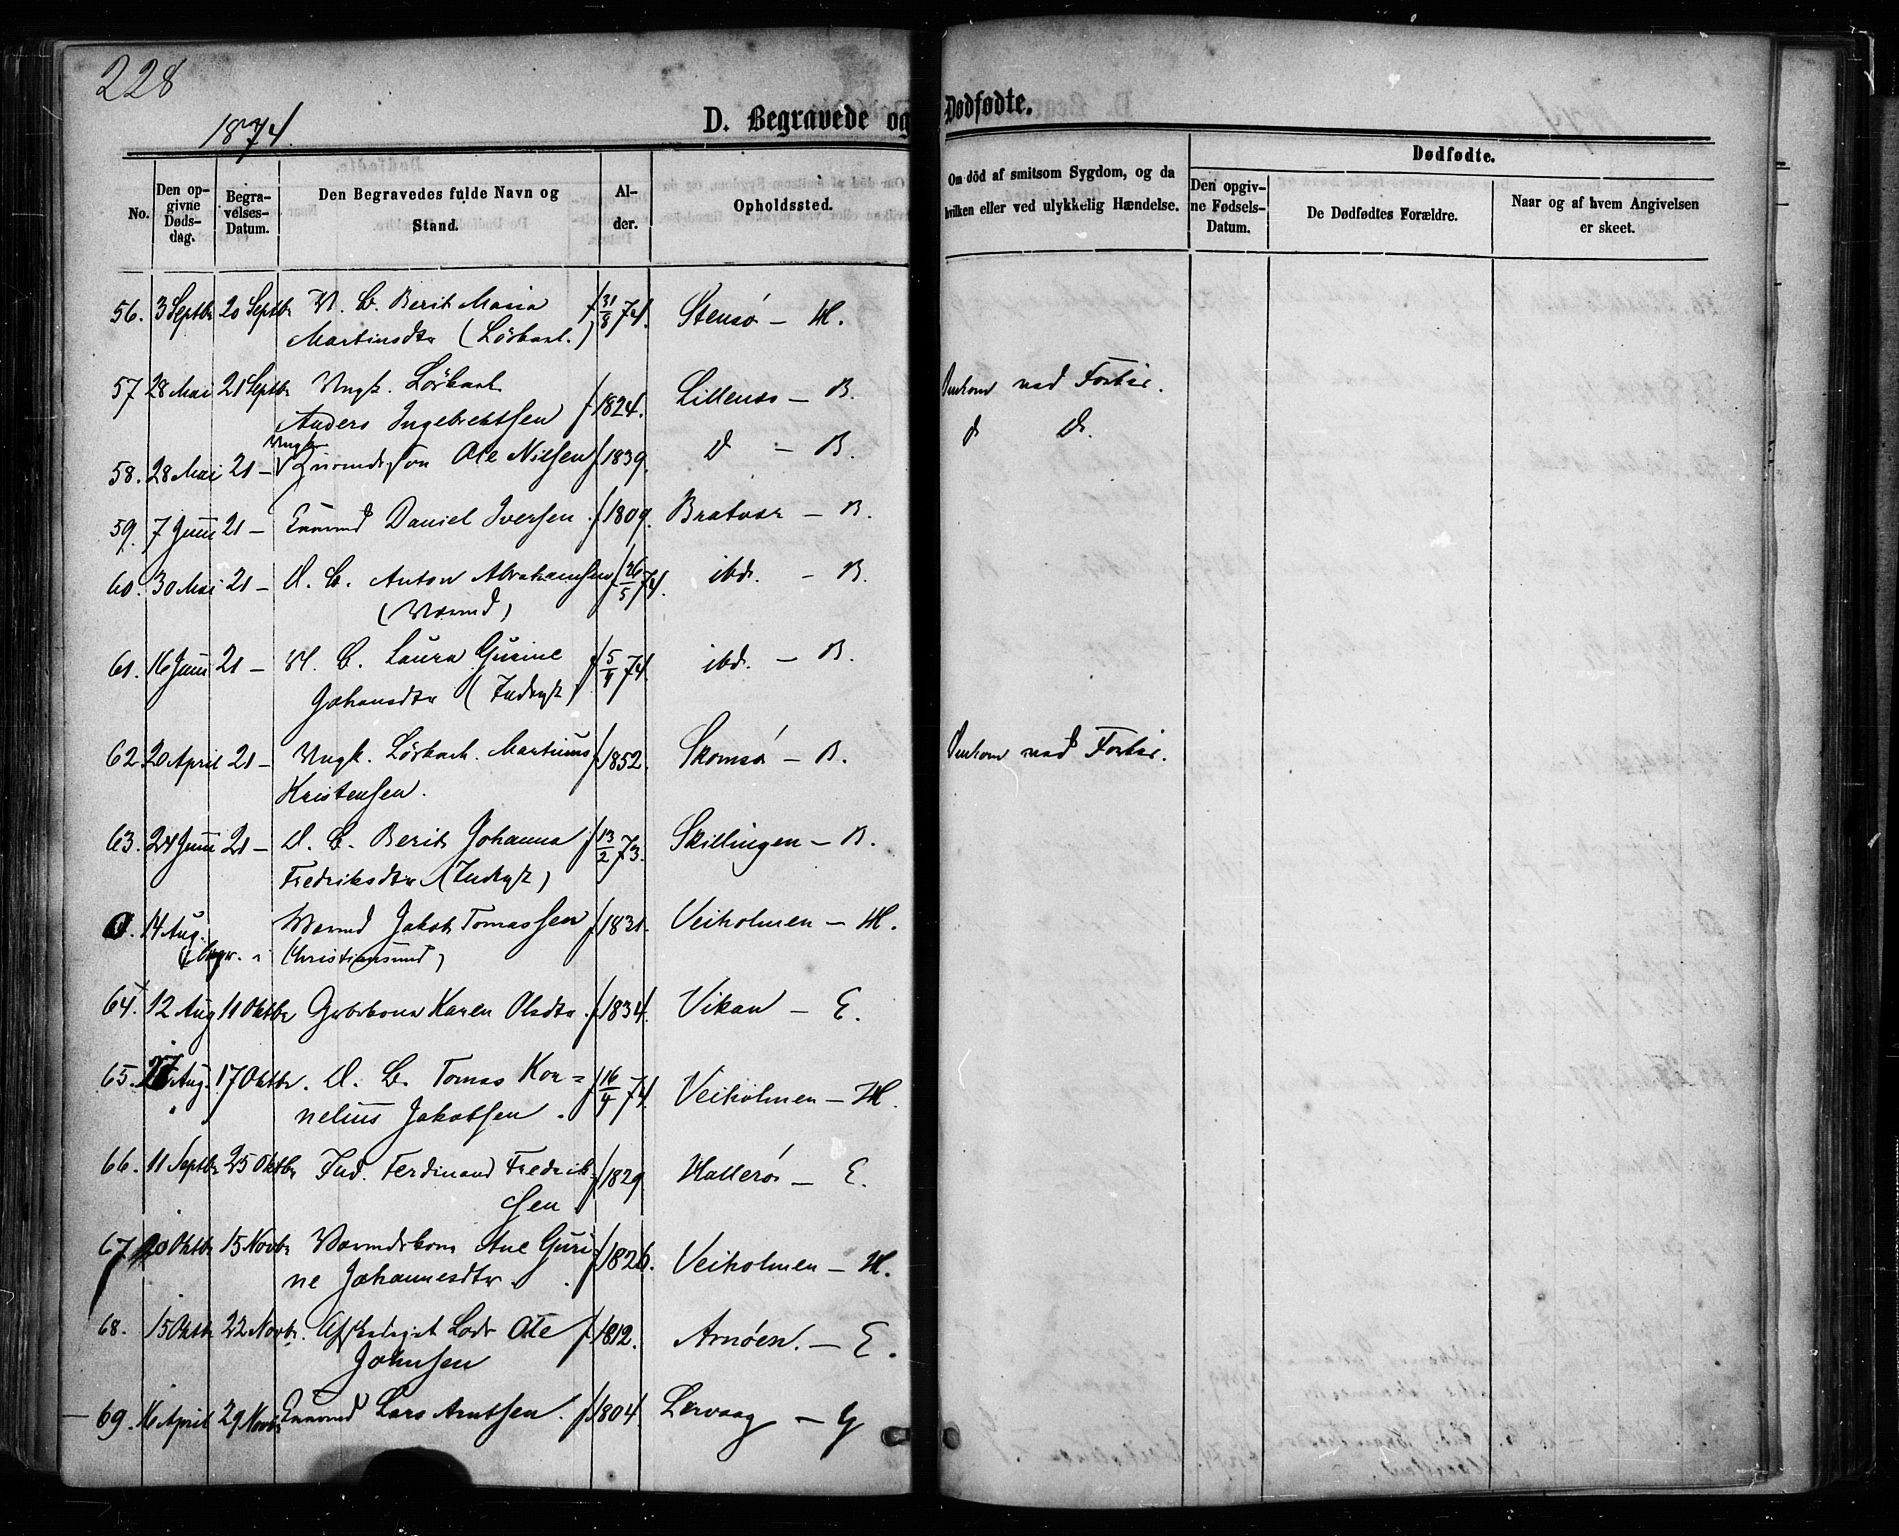 228
1874.
D. Begravede og Dødfødte.
No.
Den opgivne Dødsdag.
Begravelses-Datum.
Den Begravedes fulde Navn og Stand.
Alder.
Opholdssted.
Om död af smitsom Sygdom, og da hvilken eller ved ulykkelig Hændelse.
Dødfødte.
Den opgivne Fødsels-Datum.
De Dødfødtes Forældre.
Naar og af hvem Angivelsen er skeet.
56. 3 Septbr 20 Septbr U. B. Berit Maria f 31/8 74. Stensø – H.
Martinsdtr (Løskarl.)
57. 28 Mai 21 Septbr Ungk. Løskarl Lillenes – B. Omkom ved Forlis.
Anders Ingebrektsen f 1824.
58. 28 Mai 21 – Ungk. Ole Nilsen f 1839. d – B. d d.
59. 7 Juni 21 – Daniel Iversen f 1809. Bratvær – B.
60. 30 Mai 21 – d. B. Anton Abrahamsen f 26/5 74. ibd. – B.
61. 16 Juni 21 – B. Laura Gurine f 5/4 74. ibd. – B.
Johansdtr (Inderst)
62. 20 April 21 – Ungk. Løskarl. Martinus f 1852. Skomsø – B. Omkom ved Forlis.
Kristensen.
63. 24 Juni 21 – d. B. Berit Johanna f 13/2 73. Skillingen – B.
Fredriksdtr (Inderst)
d. 14 Aug. Jakob Tomassen f 1831. Veiholmen – H.
(begr. i Christiansund)
64. 12 Aug 11 Oktbr Karen Olsdtr f 1834. Vikan – E.
65. 27 Aug. 17 Oktbr. d. B. Tomas Kor= f 16/4 74. Veiholmen – H.
nelius Jakobsen.
66. 11 Septbr 25 Oktbr Ind. Ferdinand Fredrik- f 1829 Hallerø – E.
sen
67. 20 Oktbr 15 Novbr Ane Guri- f 1826. Veiholmen – H.
ne Johannesdtr.
68. 15 Oktbr 22 Novbr. Ole f 1812. Arnøen. – E.
Johnsen
69. 16 April 29 Novbr Lars Arntsen. f 1804 Lervaag – G